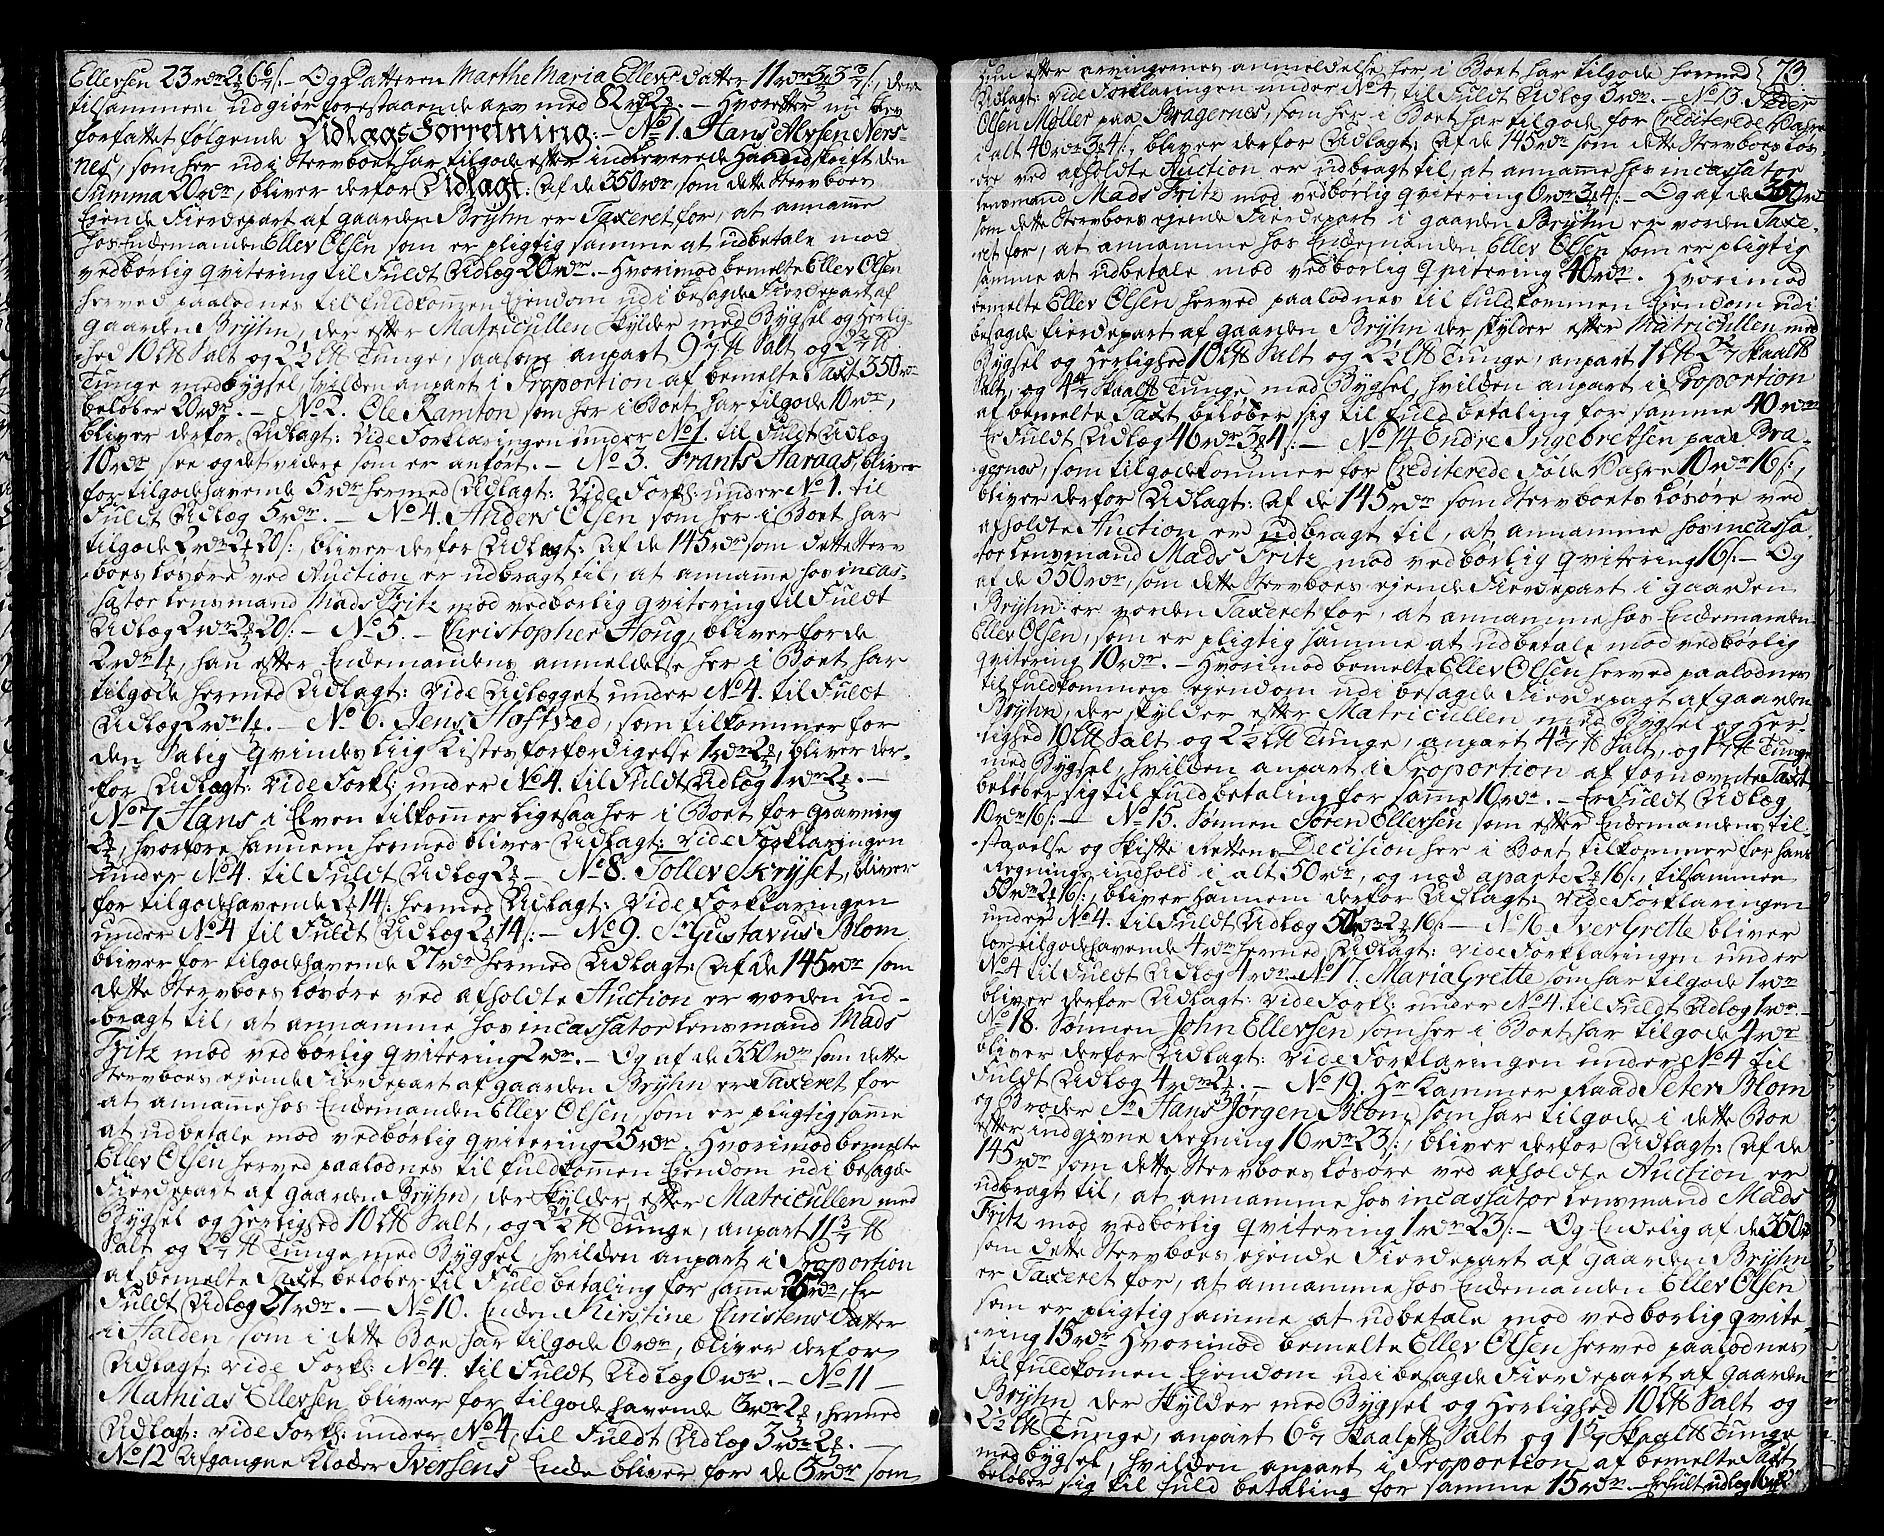 Ellevsen 23rdr 2 6/: - Og Datteren Marthe Maria Ellevs datter 11rdr 3 3/:, der
tilsammen udgiør forestaaende arv med 82rdr 2. - Hvorefter nu blev
forfattet følgende Udlags Forretning: - No 1. Hans Alvsen Ners-
nes, som her udi Stervboet har tilgode efter indleverede Haandskrift den
Summa 20rdr, bliver derfor Udlagt: af de 350rdr, som dette Stervboes
Eiende Fierdepart af gaarden Brÿhn er Taxeret for, at annamme
hos Enkemanden Ellev Olsen som er pligtig samme at udbetale mod
vedbørlig qvitering til Fuldt Udlæg 20rdr. - Hvorimod bemelte Ellev Olsen
herved paalodnes til fuldkommen Ejendom udi besagde Fierdepart af
gaarden Brÿhn, der efter Matricullen skÿlder med Bÿgsel og Herlig-
hed 10 L℔ Salt og 2½ L℔ Tunge, saasom anpart 9 ℔ Salt og 2 ℔
Tunge med bÿgsel, hvilden anpart i Proportion af bemelte Taxt 350rdr
beløber 20rdr. - No 2. Ole Ramton som her i Boet har tilgode 10rdr,
bliver derfor Udlagt: Vide Forklaringen under No 1. til Fuldt Udlæg
10rdr see og det videre som er anført. - No 3. Frants Haraas, bliver
for tilgodehavende 5rdr hermed Udlagt: Vide Forkl: under No 1. til
Fuldt Udlæg 5rdr. - No 4. Anders Olsen som her i Boet har
tilgode 2rdr 2 20/:, bliver derfor Udlagt: af de 145rdr som dette Sterv
boes Løsøre ved Auction er udbragt til, at annamme hos incas-
sator Lensmand Mads Fritz mod vedbørlig qvitering til Fuldt
Udlæg 2rdr 2 20/: - No 5. - Christopher Houg, bliver for de
2rdr 1, han efter Enkemandens anmeldelse her i Boet har
tilgode hermed Udlagt: Vide Udlægget under No 4. til Fuldt
Udlæg 2rdr 1. - No 6. Jens Hoftvod, som tilkommer for
den Salig Qvindes Liig Kistes forfærdigelse 1rdr 2, bliver der-
for Udlagt: Vide Forkl: under No 4. til Fuldt Udlæg 1rdr 2. -
No 7 Hans i Elven tilkommer ligesaa her i Boet for Gravning
2, hvorfore hannem hermed bliver Udlagt: Vide Forklaringen
under No 4. til Fuldt Udlæg 2 - No 8. Tollev Skrÿset, bliver
for tilgodehavende 2 14/: hermed Udlagt: Vide Forklaringen
under No 4 til Fuldt Udlæg 2 14/: - No 9. Sr Gustavus Blom
bliver for tilgodehavende 27rdr hermed Udlagt: af de 145rdr som
dette Stervboes Løsøre ved afholdte Auction er vorden ud-
bragt til, at annamme hos incassator Lensmand Mads
Fritz mod vedbørlig qvitering 2rdr. - Og af de 350rdr som dette
Stervboes ejende Fierdepart af gaarden Brÿhn er Taxeret for
at annamme hos Enkemanden Ellev Olsen, som er pligtig samme
at udbetale mod vedbørlig qvitering 25rdr. Hvorimod bemelte
Ellev Olsen herved paalodnes til fuldkomen Ejendom udi besagde
Fierdepart af gaarden Brÿhn, der skÿlder efter Matricullen med
Bÿgsel og Herlighed 10 L℔ Salt, og 2½ L℔ Tunge, anpart 11 3/7 ℔
Salt og 2 ℔ Tunge med Bÿgsel, hvilden anpart i Proportion
af bemelte Taxt beløber til Fuld betaling for samme 25rdr, Er
Fuldt Udlæg 27rdr. - No 10. Enken Kirstine Christens Datter
i Halden, som i dette Boe har tilgode 6rdr, bliver derfor
Udlagt: Vide Forkl: No 4. til Fuldt Udlæg 6rdr. - No 11 -
Mathias Ellevsen, bliver for tilgodehavende 3rdr 2, hermed
Udlagt: Vide Forkl: under No 4, til Fuldt Udlæg 3rdr 2. -
No 12 Afgangne Kloder Iversens Enke bliver for de 3rdr som
73.
hun efter arvingernes anmeldelse her i Boet har tilgode hermed
Udlagt: Vide Forklaringen under No 4, til Fuldt Udlæg 3rdr. - No 13. Peder
Olsen Møller paa Bragernes, som her i Boet har tilgode for Crediterede Vahre
i alt 46rdr 3 4/:, bliver derfor Udlagt: Af de 145rdr som dette Stervboes Løs-
øre ved afholdte Auction er udbragt til, at annamme hos incassator
Lensmand Mads Fritz mod vedbørlig qvitering 6rdr 3 4/: - Og af de 350rdr
som dette Stervboes ejende Fierdepart i gaarden Brÿhn er vorden Taxe-
ret for, at annamme hos Enkemanden Ellev Olsen som er pligtig
samme at udbetale mod vedbørlig qvitering 40rdr. Hvorimod
bemelte Ellev Olsen herved paalodnes til fuldkommen Ejendom udi
besagde fierdepart af gaarden Brÿhn der skÿlder efter Matricullen med
Bÿgsel og Herlighed 10 L℔ Salt og 2½ L℔ Tunge, anpart 1 L℔ 2 Skaal℔
Salt, og 4 Skaal℔ Tunge med Bÿgsel, hvilden anpart i Proportion
af bemelte Taxt beløber sig til fuld betaling for samme 40rdr
Er Fuldt Udlæg 46rdr 3 4/: - No 14 Endre Ingebretsen paa Bra-
gernes, som tilgodekommer for Crediterede Føde Vahre 10rdr 16/:,
bliver derfor Udlagt: Af de 145rdr som Stervboets Løsøre ved
afholdte Auction er udbragt til, at annamme hos incassa-
tor Lensmand Mads Fritz mod vedbørlig qvitering 16/: - Og
af de 350rdr, som dette Stervboes ejende Fierdepart i gaarden
Brÿhn er vorden Taxeret for, at annamme hos Enkemanden
Ellev Olsen, som er pligtig samme at udbetale mod vedbørlig
qvitering 10rdr. - Hvorimod bemelte Ellev Olsen herved paalodnes
til fuldkommen ejendom udi besagde Fierdepart af gaarden
Brÿhn, der skÿlder efter Matricullen med Bÿgsel og Her-
lighed 10 L℔ Salt og 2½ L℔ Tunge, anpart 4 4/7 ℔ Salt, og 1 ℔ Tunge
med Bÿgsel, hvilden anpart i Proportion af fornævnte Taxt
beløber sig til fuld betaling for samme 10rdr. - Er Fuldt Udlæg
10rdr 16/: - No 15. Sønnen Søren Ellevsen som efter Enkemandens til-
staaelse og Skifte Rettens Decision her i Boet tilkommer for hans
Regnings indhold i alt 50rdr, og nod aparte 2 16/:, tilsammen
50rdr 2 16/:, bliver hannem derfor Udlagt: Vide Forklaringen
under No 4. til Fuldt Udlæg 50rdr 2 16/: - No 16. Iver Grette bliver
for tilgodehavende 4rdr hermed Udlagt: Vide Forklaringen under
No 4 til Fuldt Udlæg 4rdr - No 17. Maria Grette som har tilgode 1rdr
bliver derfor Udlagt: Vide Forkl: under No 4. til Fuldt Udlæg 1rdr. -
No 18. Sønnen John Ellevsen som her i Boet har tilgode 4rdr
bliver derfor Udlagt: Vide Forklaringen under No 4 til
Fuldt Udlæg 4rdr 2. - No 19. Hr Kammer Raad Peter Blom
og Broder Sr Hans Jørgen Blom, som har tilgode i dette Boe
efter indgivne Regning 16rdr 23/:, bliver derfor Udlagt: Af de
145rdr som dette Stervboes Løsøre ved afholdte Auction er
udbragt til, at annamme hos incassator Lensmand Mads
Fritz mod vedbørlig qvitering 1rdr 23/: - Og Endelig af de 350r
som dette Stervboes ejende Fierdepart af gaarden Brÿhn
er Taxeret for, at annamme hos Enkemanden Ellev Olsen
som er pligtig samme at udbetale mod vedbørlig qvite-
ring 15rdr Hvorimod bemelte Ellev Olsen herved paalodnes
til fuldkomen Ejendom udi besagde Fierdepart af gaarden
Brÿhn, der skÿlder med Bÿgsel og Herlighed 10 L℔ Salt og
2½ L℔ Tunge, anpart 6 6/7 Skaalp℔ Salt og 1 5/7 Skaal℔ Tunge
med bÿgsel, hvilden anpart i Proportion af bemelte Taxt
beløber sig til fuld betaling for samme 15rdr. - Er fult udlæg 16rdr